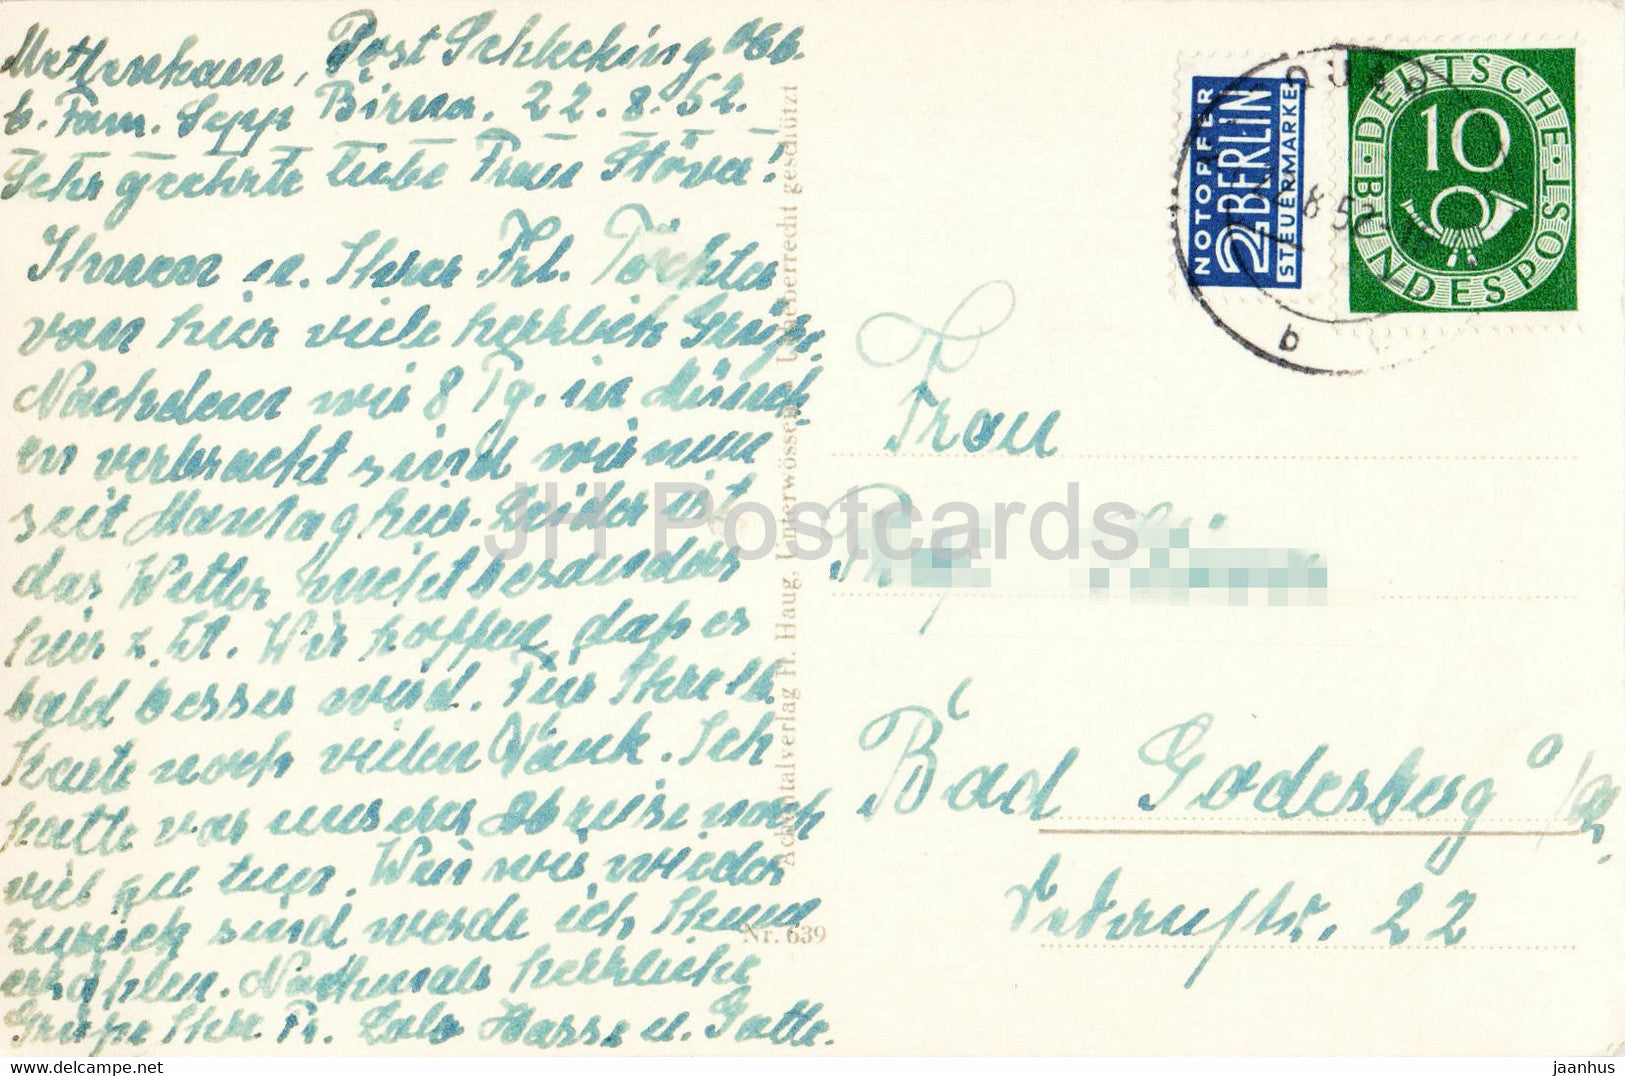 Mettenham, Post Schleching Obb.
b. Fam. Sepp Birner. 22.8.52.
Sehr geehrte liebe Frau Stöver!
Ihnen u. Ihrer Frl. Töchter
von hier viele herzlich Grüße.
Nachdem wir 8 Tg. in Münch
en verbracht sind wir nun
seit Montag hier. Leider ist
das Wetter nicht besonders
hier z. Zt. Wir hoffen, daß es
bald besser wird. Für Ihre lb.
Karte noch vielen Dank. Ich
hatte vor unserer Abreise noch
viel zu tun. Wenn wir wieder
zurück sind werde ich Ihnen
erzählen. Nochmals herzliche
Grüße Ihre Fr. Lolo Hasse u. Gatte.
Achentalverlag H. Haug, Unterwössen Urheberrecht geschützt
Nr. 639
NOTOPFER
2 BERLIN
STEUERMARKE
DEUTSCHE
10
BUNDESPOST
8.52
b
Frau
Bad Godesberg a/
22
JH Postcards
jaanhus